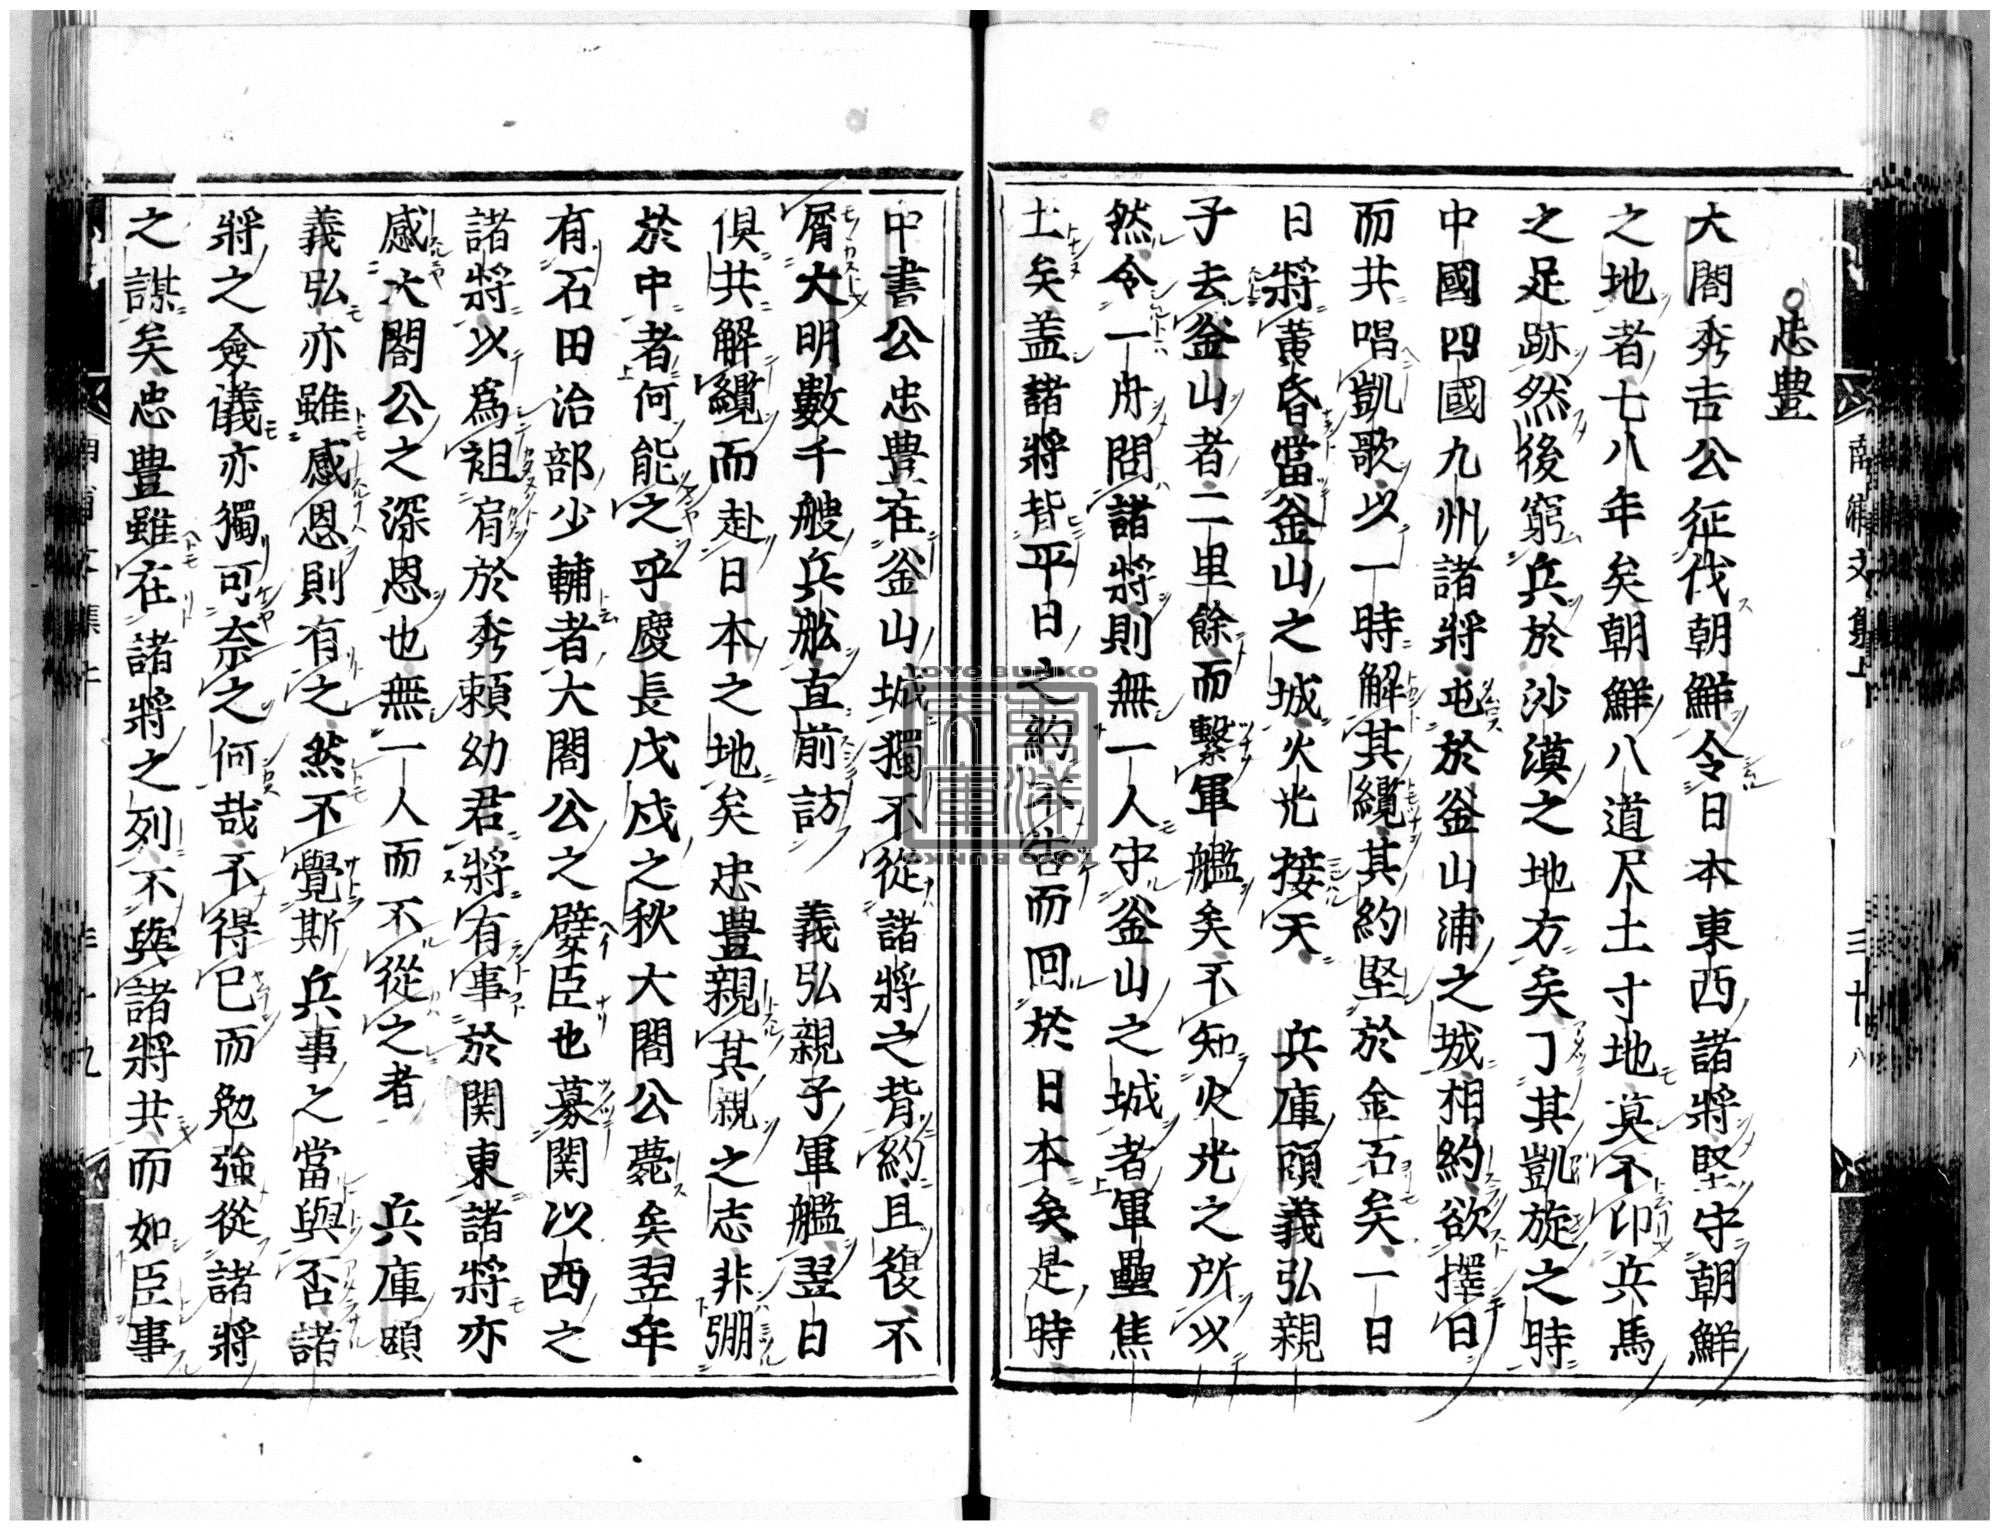 忠豊
大閤秀吉公征伐朝鮮令日本東西諸將堅守朝鮮
之地者七八年矣朝鮮八道尺土寸地莫不印兵馬
之足跡然後窮兵於沙漠之地方矣丁其凱旋之時
中國四國九州諸將屯於釜山浦之城相約欲擇日
而共唱凱歌以一時解其纜其約堅於金石矣一日
日將黄昏當釜山之城火光接天 兵庫頭義弘親
子去釜山者二里餘而繫軍艦矣不知火光之所以
然令一舟問諸將則無一人守釜山之城者軍壘焦
土矣盖諸將背平日之約不告而回於日本矣是時
中書公忠豊在釜山城獨不從諸將之背約且復不
屑大明數千艘兵舩直前訪 義弘親子軍艦翌日
俱共解纜而赴日本之地矣忠豊親其親之志非弸
於中者何能之乎慶長戊戌之秋大閤公薨矣翌年
有石田治部少輔者大閤公之嬖臣也募関以西之
諸將以爲袒肩於秀頼幼君將有事於関東諸將亦
感大閤公之深恩也無一人而不從之者 兵庫頭
義弘亦雖感恩則有之然不覺斯兵事之當與否諸
將之僉議亦獨可奈之何哉不得已而勉強從諸將
之謀矣忠豊雖在諸將之列不與諸將共而如臣事
南浦文集上
三十八
TOYO BUNKO
東洋文庫
TOYO BUNKO